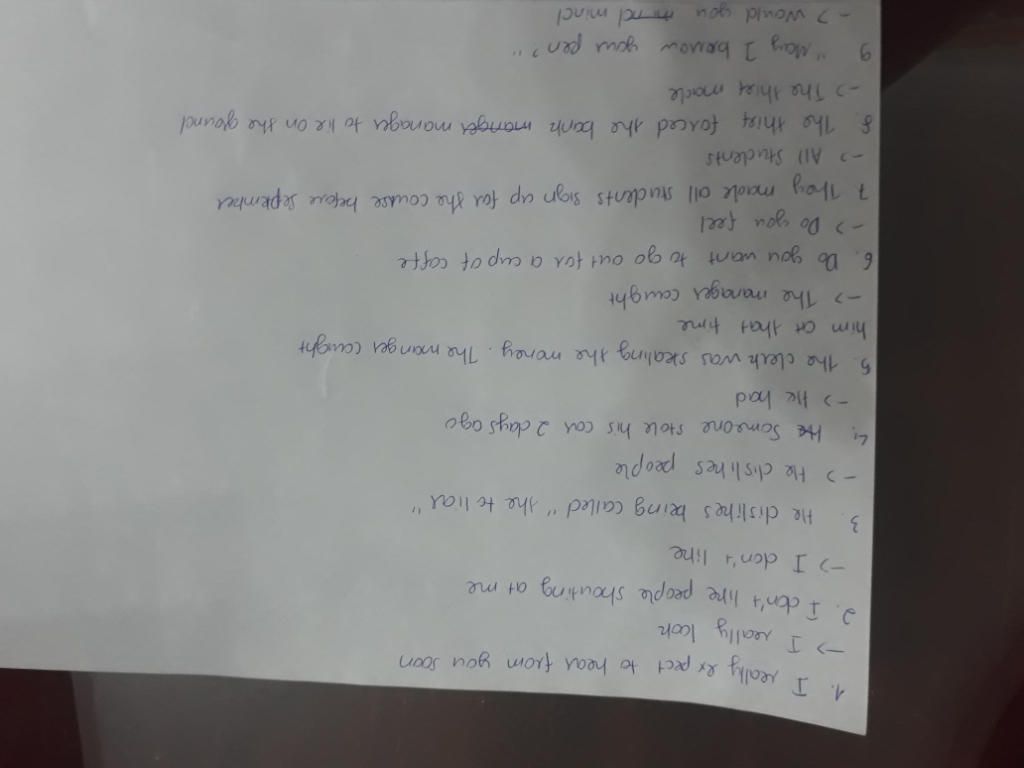 1. I really expect to hear from you soon
-> I really look
2. I don't like people shouting at me
-> I don't like
3. He dislikes being called "the to liar"
-> He dislikes people
4. He Someone stole his car 2 days ago
-> He had
5. The clerk was stealing the money. The manger caught
him at that time
-> The manager caught
6. Do you want to go out for a cup of coffe
-> Do you feel
7. They made all students sign up for the course before september
-> All students
8. The thief forced the bank manger manager to lie on the gound
-> The thief made
9 "May I borrow your pen?"
-> Would you mind